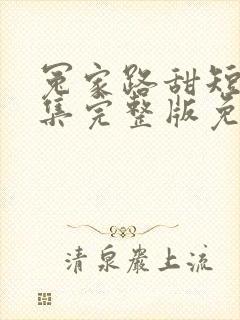 冤家路甜短
集完整版免
清泉岩上流